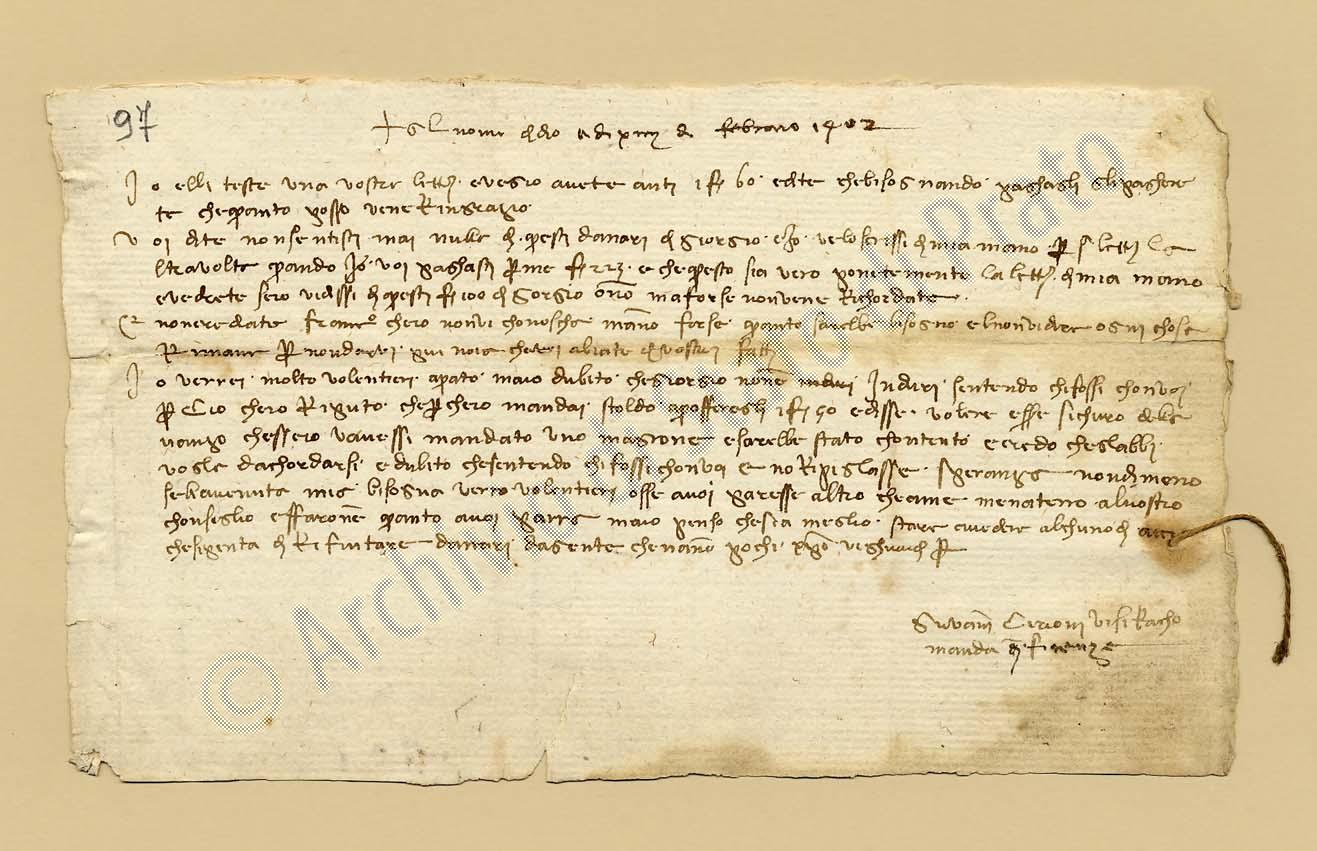 97
+ Al nome di dio a di xxiij di febraio 1402
Io ebbi teste una vostra lett. e vegio avete auti f. 60 e dite che bisognando paghagli gli paghere
te che quanto posso ve ne Ringrazio
Voi dite non sentisti mai nulla di questi danari di giorgio ve lo scrissi di mia mano per lett. la
ltra volta quando voi paghasti per me f. e che questo sia vero ponete mente la lett. di mia mano
e vedrete se io vi dissi di questi f. 100 di Gorgio ma forse non ve ne Richordate
non credate franc.o ch'io non vi chonoscha ma forse quanto sarebbe bisogno e l non vi dire ogni chosa
Rimane per non darvi più noia che vi abiate di vostri fatti
Io verrei molto volentieri a prato ma io dubito che giorgio non sentendo chi fossi chon voi
per cio ch'io Riputo che perch'io mandai stoldo a profferegli f. 50 e disse volere esse sichuro dello
vanzo che ss'io v'avessi mandato uno magiore e sarebbe stato chontento e credo che gl'abbi
vogla d'achordarsi e dubito che sentendo chi fossi chon voi e no Ripiglasse speranza nondimeno
se la venuta mia bisogna verro volentieri o sse a voi paresse altro che a me me n'aterro al vostro
chonsiglio e ffaronne quanto a voi parra ma io penso che sia meglio stare a vedere alchuno di
che si penta di Rifiutare danari da gente che n'anno pochi per
Giovanni Cirioni vi si Racho
manda di firenze
© Archivio di Stato di Prato